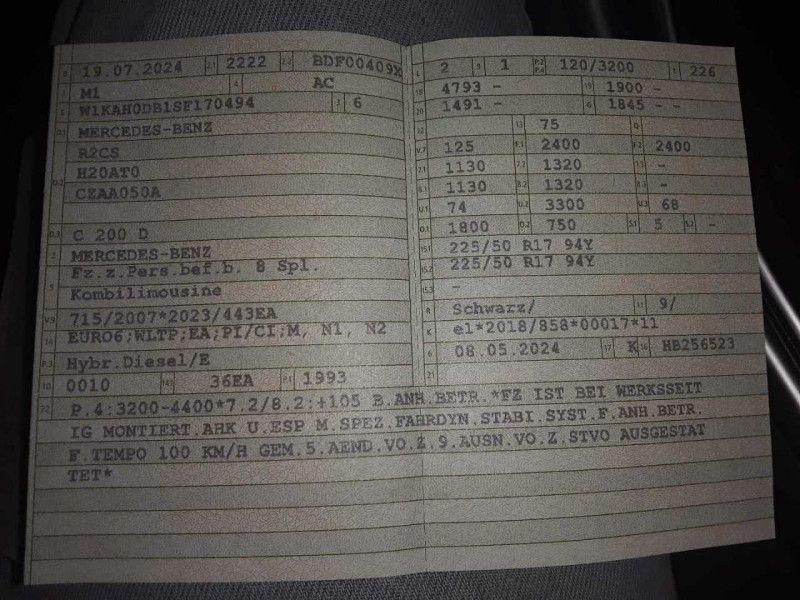 B 19.07.2024 2.1 2222 2.2 BDF00409X
J M1 4 AC
E W1KAH0DB1SF170494 3 6
D.1 MERCEDES-BENZ
R2CS
D.2 H20AT0
CZAA050A
D.3 C 200 D
2 MERCEDES-BENZ
5 Fz.z.Pers.bef.b. 8 Spl.
Kombilimousine
V.9 715/2007*2023/443EA
14 EURO6;WLTP;EA;PI/CI;M, N1, N2
P.3 Hybr.Diesel/E
10 0010 14.1 36EA P.1 1993
L 2 9 1 P.2 P.4 120/3200 T 226
18 4793 - 19 1900 -
20 1491 - G 1845 - -
12 - 13 75 Q -
V.7 125 F.1 2400 F.2 2400
7.1 1130 7.2 1320 7.3 -
8.1 1130 8.2 1320 8.3 -
U.1 74 U.2 3300 U.3 68
O.1 1800 O.2 750 S.1 5 S.2 -
15.1 225/50 R17 94Y
15.2 225/50 R17 94Y
15.3 -
R Schwarz/ 11 9/
K e1*2018/858*00017*11
6 08.05.2024 17 K 16 HB256523
21
22 P.4:3200-4400*7.2/8.2:+105 B.ANH.BETR.*FZ IST BEI WERKSSEIT
IG MONTIERT.AHK U.ESP M.SPEZ.FAHRDYN.STABI.SYST.F.ANH.BETR.
F.TEMPO 100 KM/H GEM.5.AEND.VO.Z.9.AUSN.VO.Z.STVO AUSGESTAT
TET*